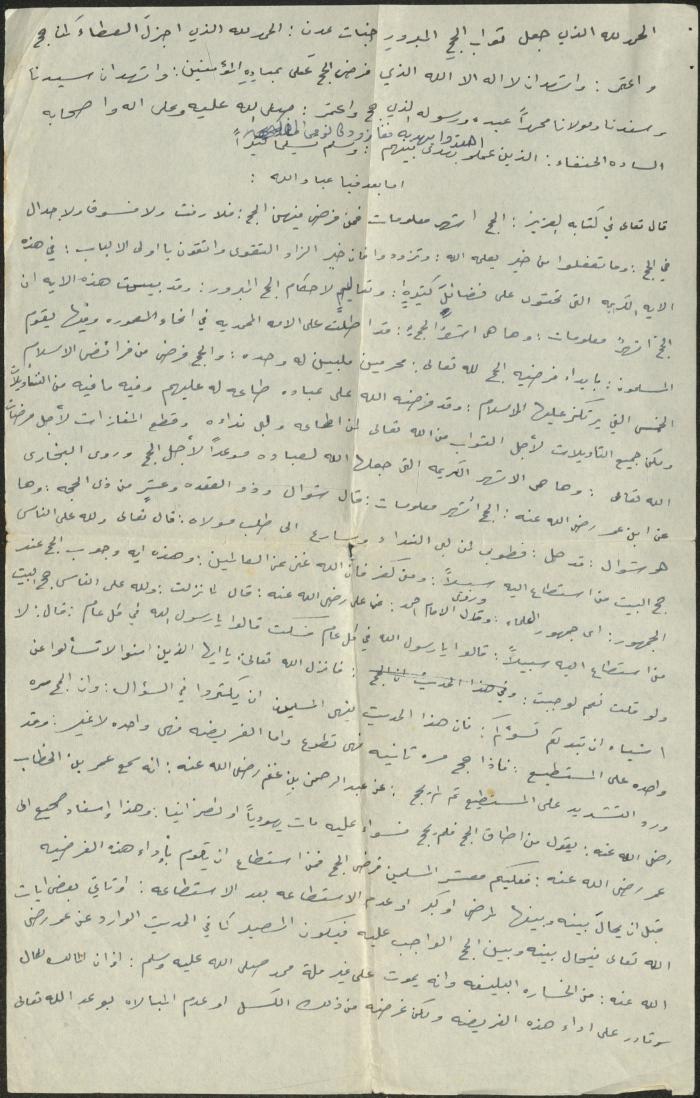 الحمد لله الذي جعل ثواب الحج المبرور جنات عدن : الحمد لله الذي اجزل العطاء لمن حج
واعتمر : واشهد ان لا اله الا الله الذي فرض الحج على عباده المؤمنين : واشهد ان سيدنا
وسندنا ومولانا محمداً عبده ورسوله الذي حج واعتمر : صلى الله عليه وعلى اله واصحابه
الساده الحنفاء : الذين عملوا بهدي نبيهم : وسلم تسليما كثيراً
اما بعد فيا عباد الله :
قال تعالى في كتابه العزيز : الحج اشهر معلومات فمن فرض فيهن الحج : فلا رفث ولا فسوق ولا جدال
في الحج : وما تفعلوا من خير يعلمه الله : وتزودوا فان خير الزاد التقوى واتقون يا اولى الالباب : في هذه
الايه الكريمه التي تحتوى على فضائل كثيرة : وتعاليم لاحكام الحج المبرور : وقد بينت هذه الايه ان
الحج اشهرٌ معلومات : وها هى اشهر الحج : قد اطلت على الامه المحمديه في انحاء المعموره وفيها يقوم
المسلمون : باداء فريضة الحج لله تعالى : محرمين ملبيين له وحده : والحج فرض من فرائض الاسلام
الخمس التي يرتكز عليها الاسلام : وقد فرضه الله على عباده طاعه له عليهم وفيه ما فيه من التأويلات
ولكن جميع التأويلات لأجل الثواب من الله تعالى لمن اطاعه ولبى نداءه وقطع المفازات لأجل مرضات
الله تعالى : وها هى الاشهر الكريمه التى جعلها الله لعباده موعداً لأجل الحج وروى البخارى
عن ابن عمر رضى الله عنه : الحج أشهر معلومات : قال شوال وذو القعده وعشر من ذى الحجه : وها
هو شوال : قد حل : فطوبى لمن لبى النداء وسارع الى طلب مولاه : قال تعالى ولله على الناس
حج البيت من استطاع اليه سبيلاً : ومن كفر فان الله غنى عن العالمين : وهذه ايه وجوب الحج عند
الجمهور : اى جمهور العلماء : وروى الامام احمد : عن على رضى الله عنه : قال لما نزلت : ولله على الناس حج البيت
من استطاع اليه سبيلاً : قالوا يا رسول الله في كل عام فسكت قالوا يا رسول الله في كل عام : قال : لا
ولو قلت نعم لوجبت : وفي هذا الحديث ان الحج : فانزل الله تعالى : يا ايها الذين امنوا لا تسألوا عن
اشياء ان تبد لكم تسؤكم : فان هذا الحديث ينهى المسلمين ان يكثروا في السؤال : وان الحج مره
واحده على المستطيع : فاذا حج مره ثانيه فهى تطوع واما الفريضه فهى واحده لا غير : وقد
ورد التشديد على المستطيع ثم لم يحج : عن عبد الرحمن بن غنم رضى الله عنه : انه سمع عمر بن الخطاب
رضى الله عنه : يقول من اطاق الحج فلم يحج فسواء عليه مات يهودياً او نصرانيا : وهذا إسناد صحيح الى
عمر رضى الله عنه : فعليكم معشر المسلمين فرض الحج فمن استطاع ان يقوم بأداء هذه الفريضه
قبل ان يحال بينه وبينها لمرض او كبر او عدم الاستطاعه بعد الاستطاعه : او تأتي بعض ايات
الله تعالى فيحال بينه وبين الحج الواجب عليه فيكون المصير كما في الحديث الوارد عن عمر رضى
الله عنه : من الخساره البليغه وانه يموت على غير ملة محمد صلى الله عليه وسلم : اذا ان المالك للمال
وقادر على اداء هذه الفريضه ولكن غرضه من ذلك الكسل او عدم المبالاه بوعد الله تعالى